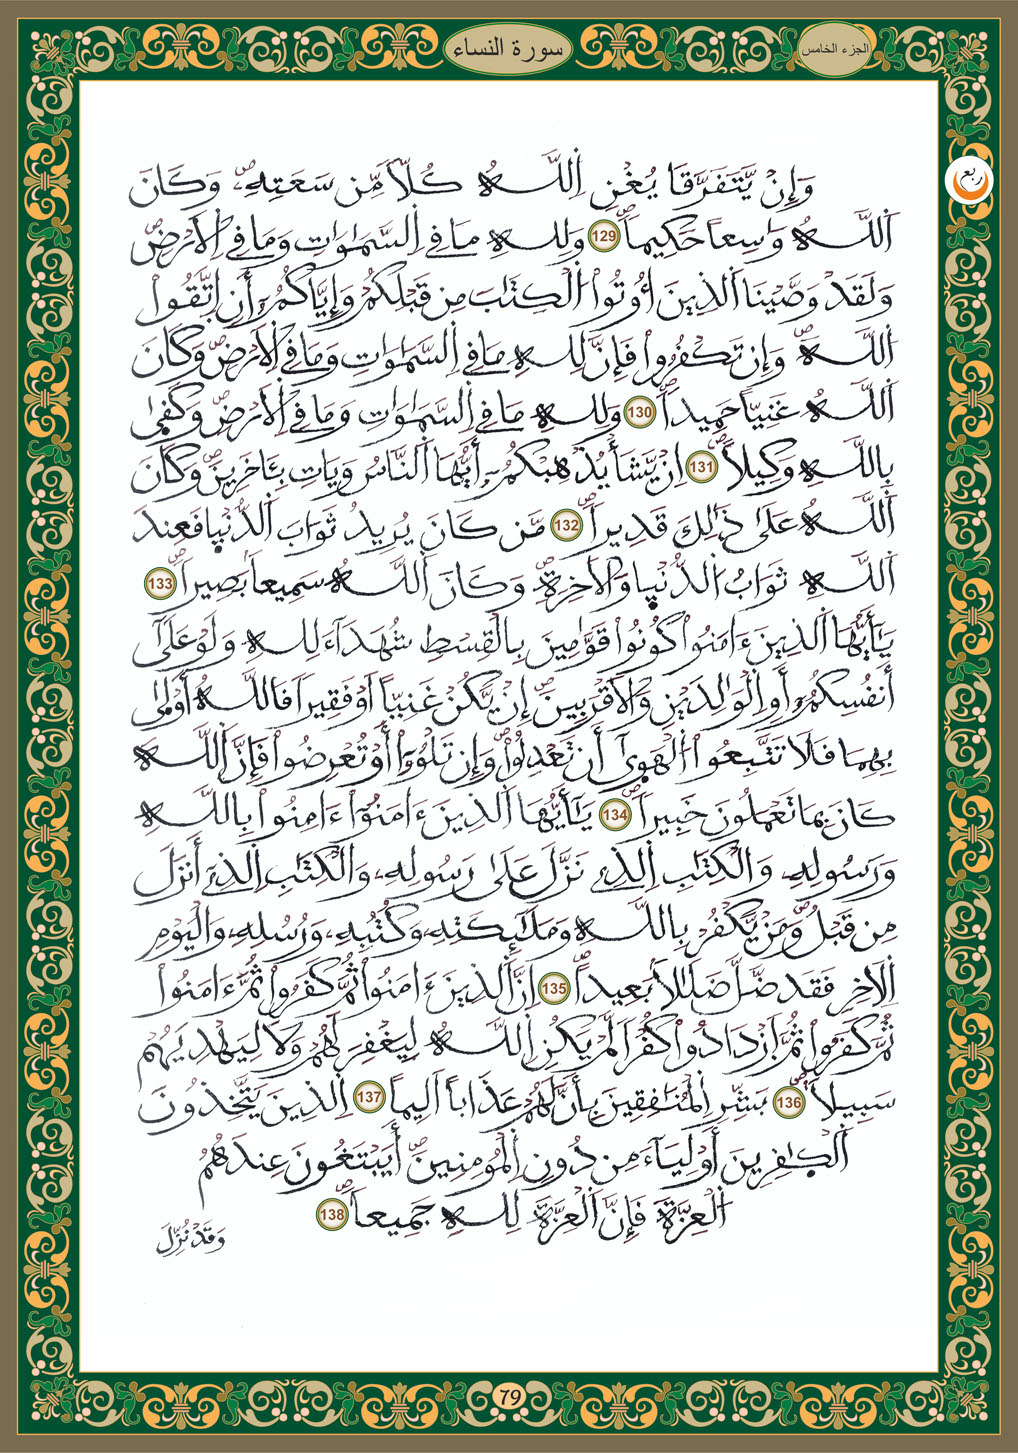 الجزء الخامس
سورة النساء
ربع
وَإِنْ يَّتَفَرَّقَا يُغْنِ اِللَّهُ كُلّاً مِّن سَعَتِهِۦۖ وَكَانَ
اَللَّهُ وَٰسِعاً حَكِيماًۖ 129 وَلِلهِ مَا فِے اِلسَّمَٰوَٰتِ وَمَا فِے اِلَارْضِۖ
وَلَقَدْ وَصَّيْنَا اَلذِينَ أُوتُواْ اُلْكِتَٰبَ مِن قَبْلِكُمْ وَإِيَّاكُمُۥٓ أَنِ اِتَّقُواْ
اُللَّهَۖ وَإِن تَكْفُرُواْ فَإِنَّ لِلهِ مَا فِے اِلسَّمَٰوَٰتِ وَمَا فِے اِلَارْضِۖ وَكَانَ
اَللَّهُ غَنِيّاً حَمِيداًۖ 130 وَلِلهِ مَا فِے اِلسَّمَٰوَٰتِ وَمَا فِے اِلَارْضِۖ وَكَفَىٰ
بِاللَّهِ وَكِيلاًۖ 131 اِنْ يَّشَأْ يُذْهِبْكُمُۥٓ أَيُّهَا اَلنَّاسُ وَيَاتِ بِـَٔاخَرِينَۖ وَكَانَ
اَللَّهُ عَلَىٰ ذَٰلِكَ قَدِيراًۖ 132 مَّن كَانَ يُرِيدُ ثَوَابَ اَلدُّنْيٜا فَعِندَ
اَللَّهِ ثَوَابُ اُلدُّنْيٜا وَالَاخِرَةِۖ وَكَانَ اَللَّهُ سَمِيعاَۢ بَصِيراًۖ 133
يَٰٓأَيُّهَا اَلذِينَ ءَامَنُواْ كُونُواْ قَوَّٰمِينَ بِالْقِسْطِ شُهَدَآءَ لِلهِ وَلَوْ عَلَىٰٓ
أَنفُسِكُمُۥٓ أَوِ اِلْوَٰلِدَيْنِ وَالَاقْرَبِينَۖ إِنْ يَّكُنْ غَنِيّاً اَوْ فَقِيراً فَاللَّهُ أَوْلَىٰ
بِهِمَا فَلَا تَتَّبِعُواْ اُلْهَوَىٰٓ أَن تَعْدِلُواْۖ وَإِن تَلْوُۥٓاْ أَوْ تُعْرِضُواْ فَإِنَّ اَللَّهَ
كَانَ بِمَا تَعْمَلُونَ خَبِيراًۖ 134 يَٰٓأَيُّهَا اَلذِينَ ءَامَنُوٓاْ ءَامِنُواْ بِاللَّهِ
وَرَسُولِهِۦ وَالْكِتَٰبِ اِلذِے نَزَّلَ عَلَىٰ رَسُولِهِۦ وَالْكِتَٰبِ اِلذِےٓ أَنزَلَ
مِن قَبْلُۖ وَمَنْ يَّكْفُرْ بِاللَّهِ وَمَلَٰٓئِكَتِهِۦ وَكُتُبِهِۦ وَرُسُلِهِۦ وَالْيَوْمِ
اِلَاخِرِ فَقَد ضَّلَّ ضَلَٰلاَۢ بَعِيداًۖ 135 اِنَّ اَلذِينَ ءَامَنُواْ ثُمَّ كَفَرُواْ ثُمَّ ءَامَنُواْ
ثُمَّ كَفَرُواْ ثُمَّ اَزْدَادُواْ كُفْراً لَّمْ يَكُنِ اِللَّهُ لِيَغْفِرَ لَهُمْ وَلَا لِيَهْدِيَهُمْ
سَبِيلاًۖ 136 بَشِّرِ اِلْمُنَٰفِقِينَ بِأَنَّ لَهُمْ عَذَاباً اَلِيماً 137 اِلذِينَ يَتَّخِذُونَ
اَلْكٰ۪فِرِينَ أَوْلِيَآءَ مِن دُونِ اِلْمُومِنِينَۖ أَيَبْتَغُونَ عِندَهُمُ
اُلْعِزَّةَۖ فَإِنَّ اَلْعِزَّةَ لِلهِ جَمِيعاًۖ 138
وَقَدْ نُزِّلَ
79